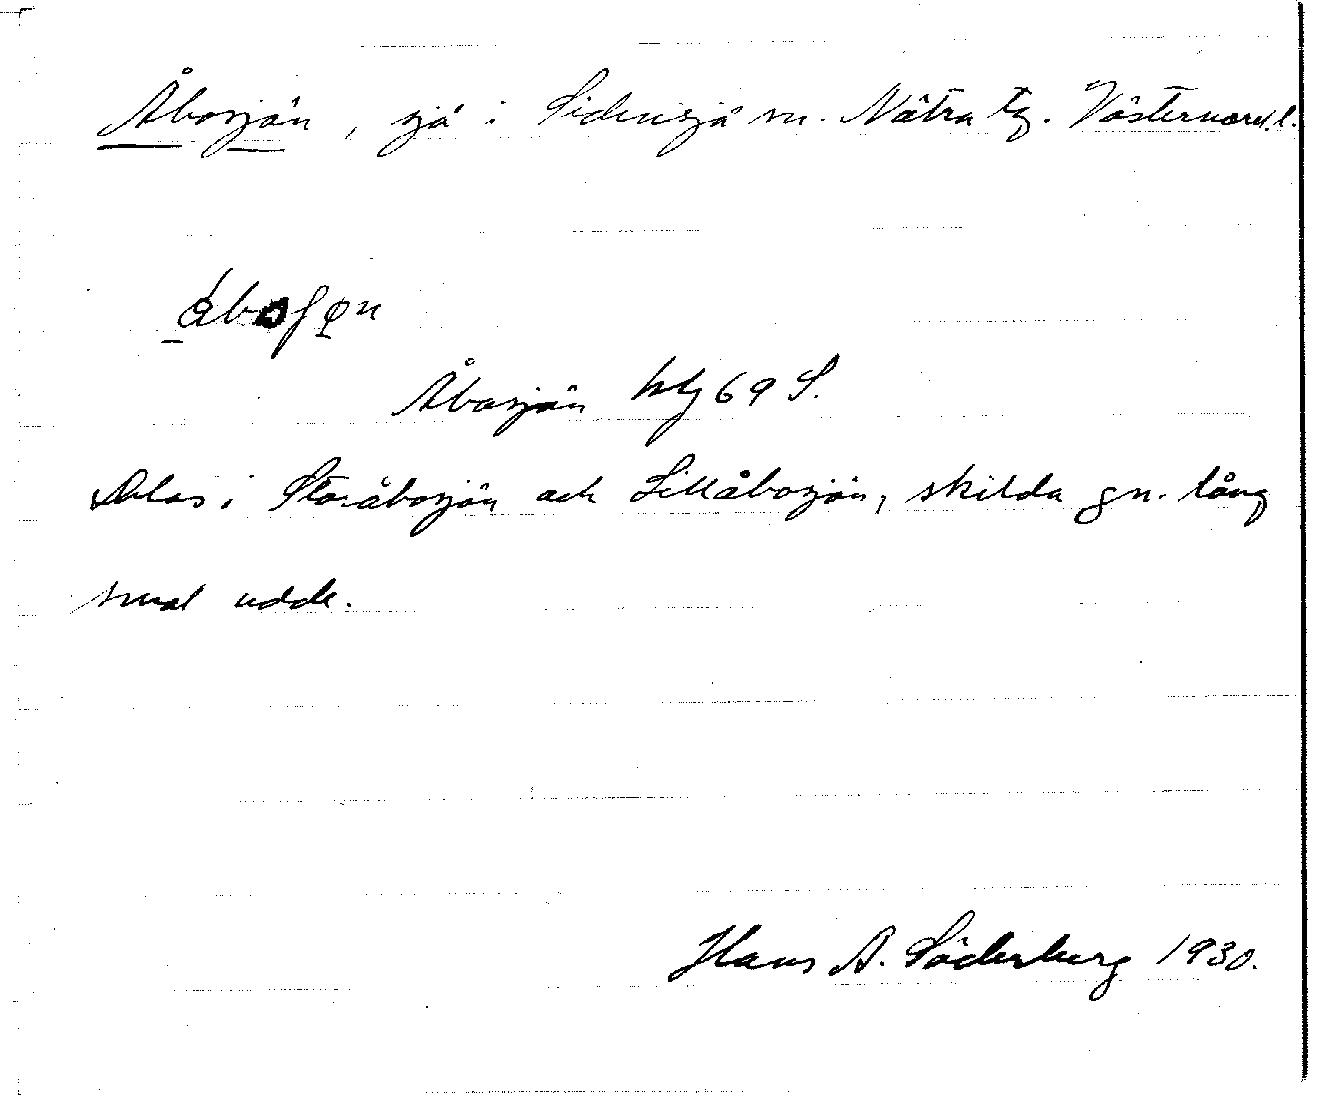 Åbosjön, sjö i Sidensjö sn. Nätra tg. Västernorrl. l.
Åbosjön ktbl 69 S.
Delas i Storåbosjön och Lillåbosjön, skilda gn. lång
smal udde.
Hans A. Söderberg 1930.